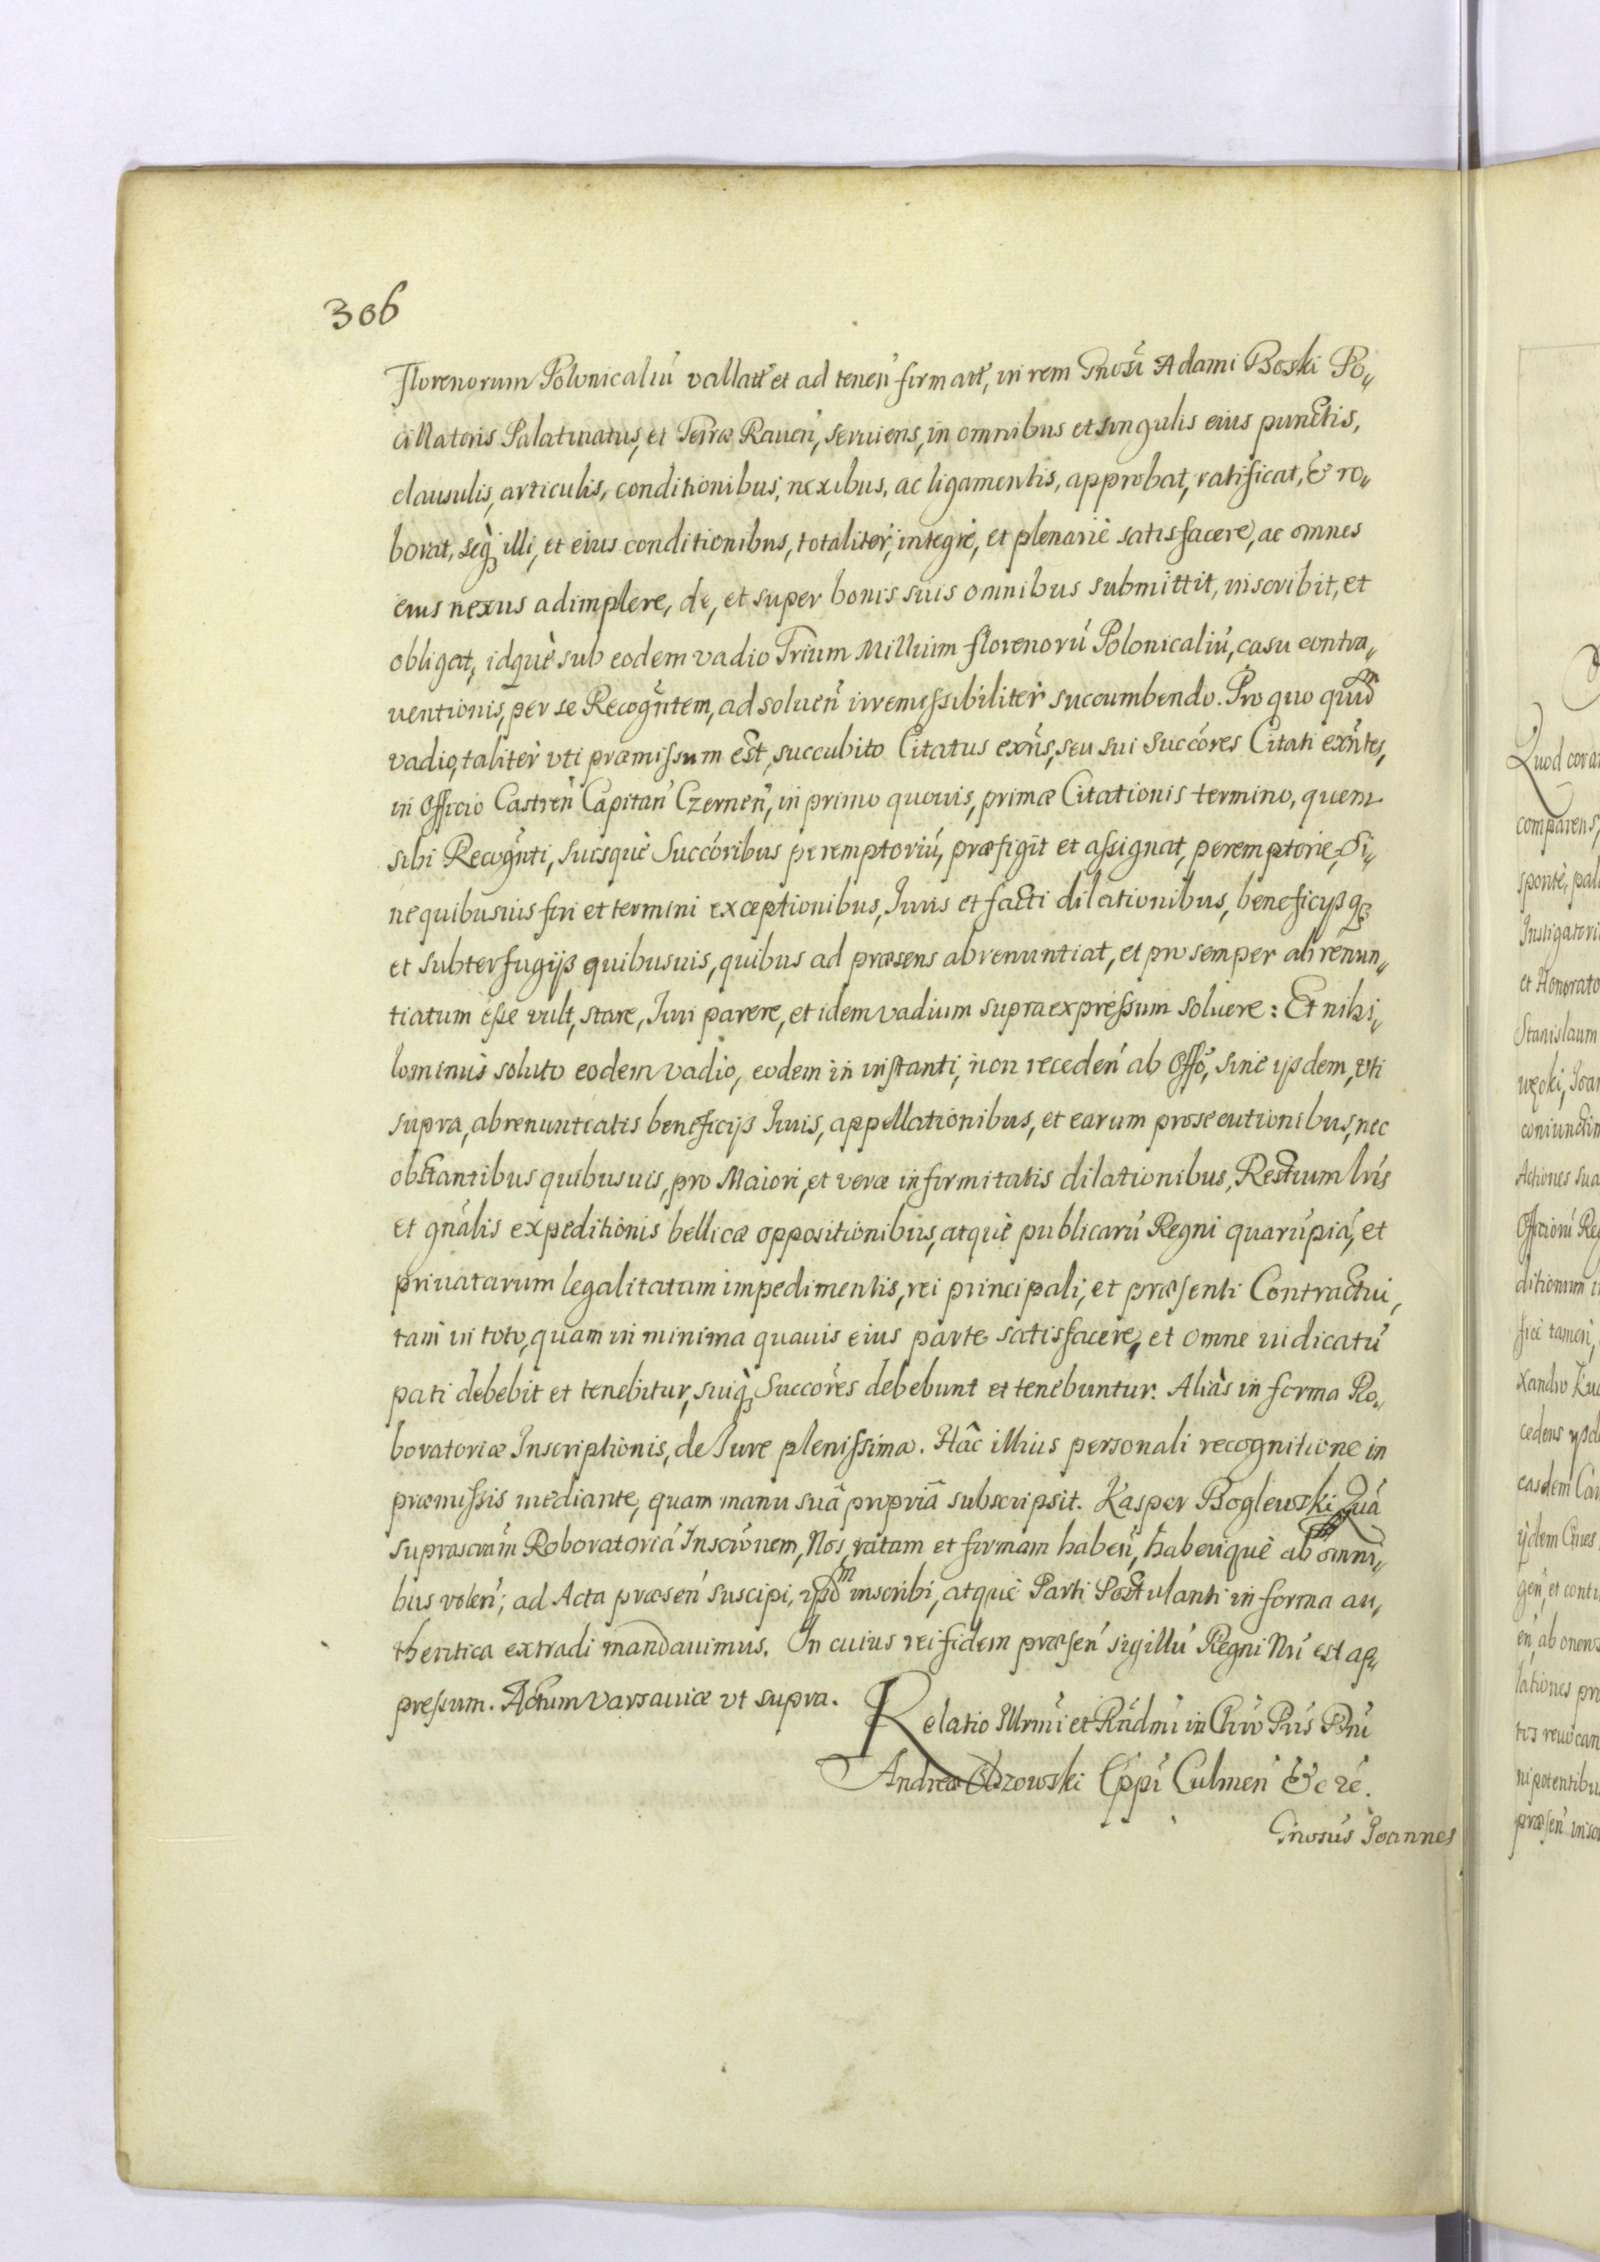 306
Florenorum Polonicaliú vallatt et ad tenen̄ firmatt, in rem Gnosi Adami Boski Po„
cillatoris Palatinatus, et Terræ Raven̄, seruiens, in omnibus et singulis eius punctis,
clausulis, articulis, conditionibus, nexibus, ac ligamentis, approbat, ratificat, & ro„
borat, seq̀ illi, et eius conditionibus, totalitèr, integrè, et plenariè satisfacere, ac omnes
eius nexus adimplere, de, et super bonis suis omnibus submittit, inscribit, et
obligat, idquè sub eodem vadio Trium Millium florenorú Polonicaliú, casu contra„
uentionis, per se Recogn̄tem, ad soluen̄ irremissibilitèr succumbendo. Pro quo quidm
vadio, talitèr vti præmissum est, succubito Citatus exn̄s, seu sui Succóres Citati exn̄tes,
in Officio Castren̄ Capitan̄ Czernen̄, in primo quouis, primæ Citationis termino, quem
sibi Recogn̄ti, suisquè Succóribus peremptoriú, præfigit et assignat, peremptorie, Si„
ne quibusuis fori et termini exceptionibus, Iuris et facti dilationibus, beneficysq̨
et subterfugijs quibusuis, quibus ad præsens abrenuntiat, et pro semper abrenun„
tiatum esse vult, stare, Iuri parere, et idem vadium supraexpressum soluere: Et nihi„
lominùs soluto eodem vadio, eodem in instanti, non receden̄ ab Offō, sine ijsdem, vti
supra, abrenuntiatis beneficijs Iuris, appellationibus, et earum prosecutionibus, nec
obstantibus quibusuis, pro Maiori, et veræ infirmitatis dilationibus, Restium lris
et gnālis expeditionis bellicæ oppositionibus, atquè publicarú Regni quarúpiá, et
priuatarum legalitatum impedimentis, rei principali, et præsenti Contractui,
tam in toto, quam in minima quauis eius parte satisfacere, et omne iudicatú
pati debebit et tenebitur, suiq̀ Succóres debebunt et tenebuntur. Aliàs in forma Ro„
boratoriæ Inscriptionis, de Iure plenissima. Hâc illius personali recognitione in
præmissis mediante, quam manu suâ propriâ subscripsit. Kasper Boglewski Quá
suprascrām Roboratoriá Inscr̄onem, Nos, ratam et firmam haben̄, haberiquè ab omni„
bus volen̄; ad Acta præsen̄ suscipi, ijsdm inscribi, atquè Parti Postulanti in forma au„
thentica extradi mandauimus. In cuius rei fidem præsen̄ sigillú Regni Nri est ap„
pressum. Actum Varsauiæ vt supra.
Relatio Illrmi et Rndmi in Chro Pris Dni
Andreæ Olszowski Eppi Culmen̄ &c re.
Gnosus Joannes